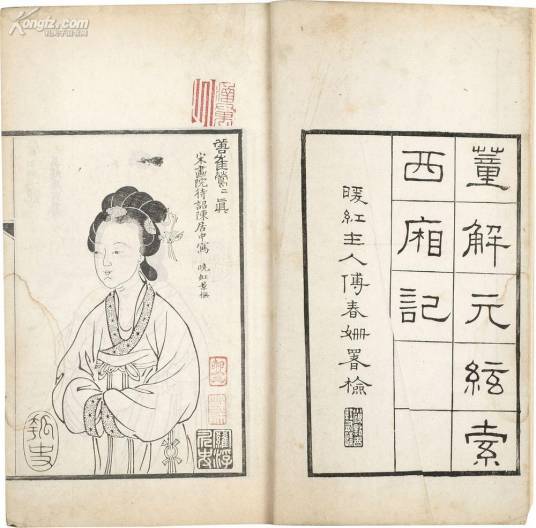 董解元絃索
西廂記
暖紅主人傅春姍署檢
崔鶯二真
宋畫院待詔陳居中寫
Kongfz.com